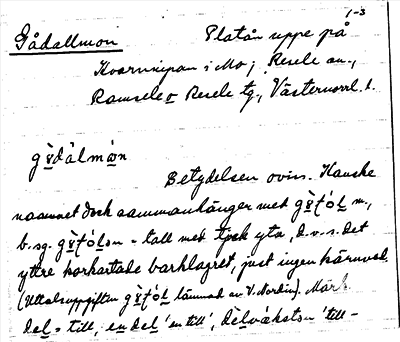 1-3
Gådallmon Platån uppe på
Kvarnripan i Mo; Resele sn.,
Ramsele o Resele tg., Västernorrl. l.
Betydelsen oviss. Kanske
namnet dock sammanhänger med
b. sg. - tall med tjock yta, d.v.s. det
yttre korkartade barklagret, just ingen kärnved.
(Uttalsuppgiften lämnad av V. Nordin). Märk
del = till, en del 'en till', delväkston 'till-